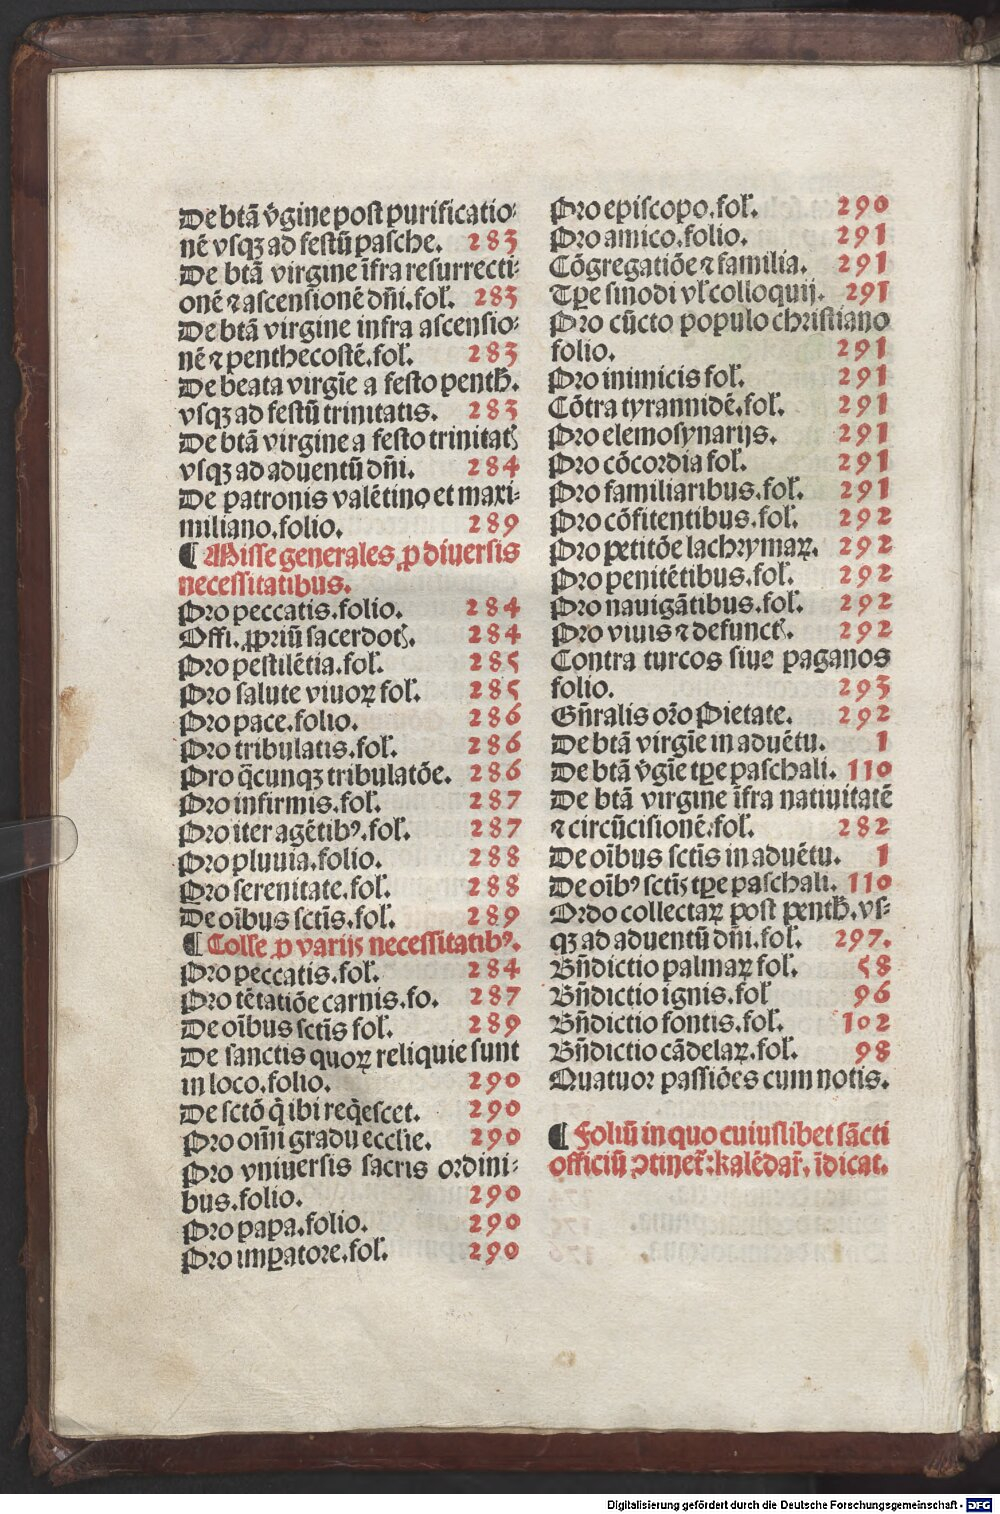 De btā v̄gine post purificatio⸗
nē vsqꝫ ad festū pasche. 283
De btā virgine īfra resurrecti⸗
onē ⁊ ascensionē dn̄i. fol̕. 283
De btā virgine infra ascensio⸗
nē ⁊ penthecostē. fol̕. 283
De beata virgīe a festo penth̄.
vsqꝫ ad festū trinitatis. 283
De btā virgine a festo trinitatꝭ
vsqꝫ ad aduentū dn̄i. 284
De patronis valētino et maxi⸗
miliano. folio. 289
¶ Misse generales ꝓ diuersis
necessitatibus.
Pro peccatis. folio. 284
Offi. ꝓpriū sacerdotꝭ. 284
Pro pestilētia. fol̕. 285
Pro salute viuoꝝ fol̕. 285
Pro pace. folio. 286
Pro tribulatis. fol̕. 286
Pro q̄cunqꝫ tribulatōe. 286
Pro infirmis. fol̕. 287
Pro iter agētibꝰ. fol̕. 287
Pro pluuia. folio. 288
Pro serenitate. fol̕. 288
De oībus sctīs. fol̕. 289
¶ Colle ꝓ varijs necessitatibꝰ.
Pro peccatis. fol̕. 284
Pro tētatiōe carnis. fo. 287
De oībus sctīs fol̕. 289
De sanctis quoꝝ reliquie sunt
in loco. folio. 290
De sctō q̄ ibi req̄escet. 290
Pro om̄i gradu ecclie. 290
Pro vniuersis sacris ordini⸗
bus. folio. 290
Pro papa. folio. 290
Pro imꝑatore. fol̕. 290
Pro episcopo. fol̕. 290
Pro amico. folio. 291
Cōgregatiōe ⁊ familia. 291
Tꝑe sinodi vl̕ colloquij. 291
Pro cūcto populo christiano
folio. 291
Pro inimicis fol̕. 291
Cōtra tyrannidē. fol̕. 291
Pro elemosynarijs. 291
Pro cōcordia fol̕. 291
Pro familiaribus. fol̕. 291
Pro cōfitentibus. fol̕. 292
Pro petitōe lachrymaꝝ. 292
Pro penitētibus. fol̕. 292
Pro nauigātibus. fol̕. 292
Pro viuis ⁊ defunctꝭ. 292
Contra turcos siue paganos
folio. 293
Gn̄ralis or̄o Pietate. 292
De btā virgīe in aduētu. 1
De btā v̄gīe tꝑe paschali. 110
De btā virgine īfra natiuitatē
⁊ circūcisionē. fol̕. 282
De oībus sctīs in aduētu. 1
De oībꝰ sctīs tꝑe paschali. 110
Ordo collectaꝝ post penth̄. vs⸗
qꝫ ad aduentū dn̄i. fol̕. 297.
Bn̄dictio palmaꝝ fol̕. 58
Bn̄dictio ignis. fol 96
Bn̄dictio fontis. fol̕. 102
Bn̄dictio cādelaꝝ. fol̕. 98
Quatuor passiōes cum notis.
¶ Foliū in quo cuiuslibet sācti
officiū ꝯtinet᷑: kalēdar̄. īdicat.
Digitalisierung gefördert durch die Deutsche Forschungsgemeinschaft - DFG